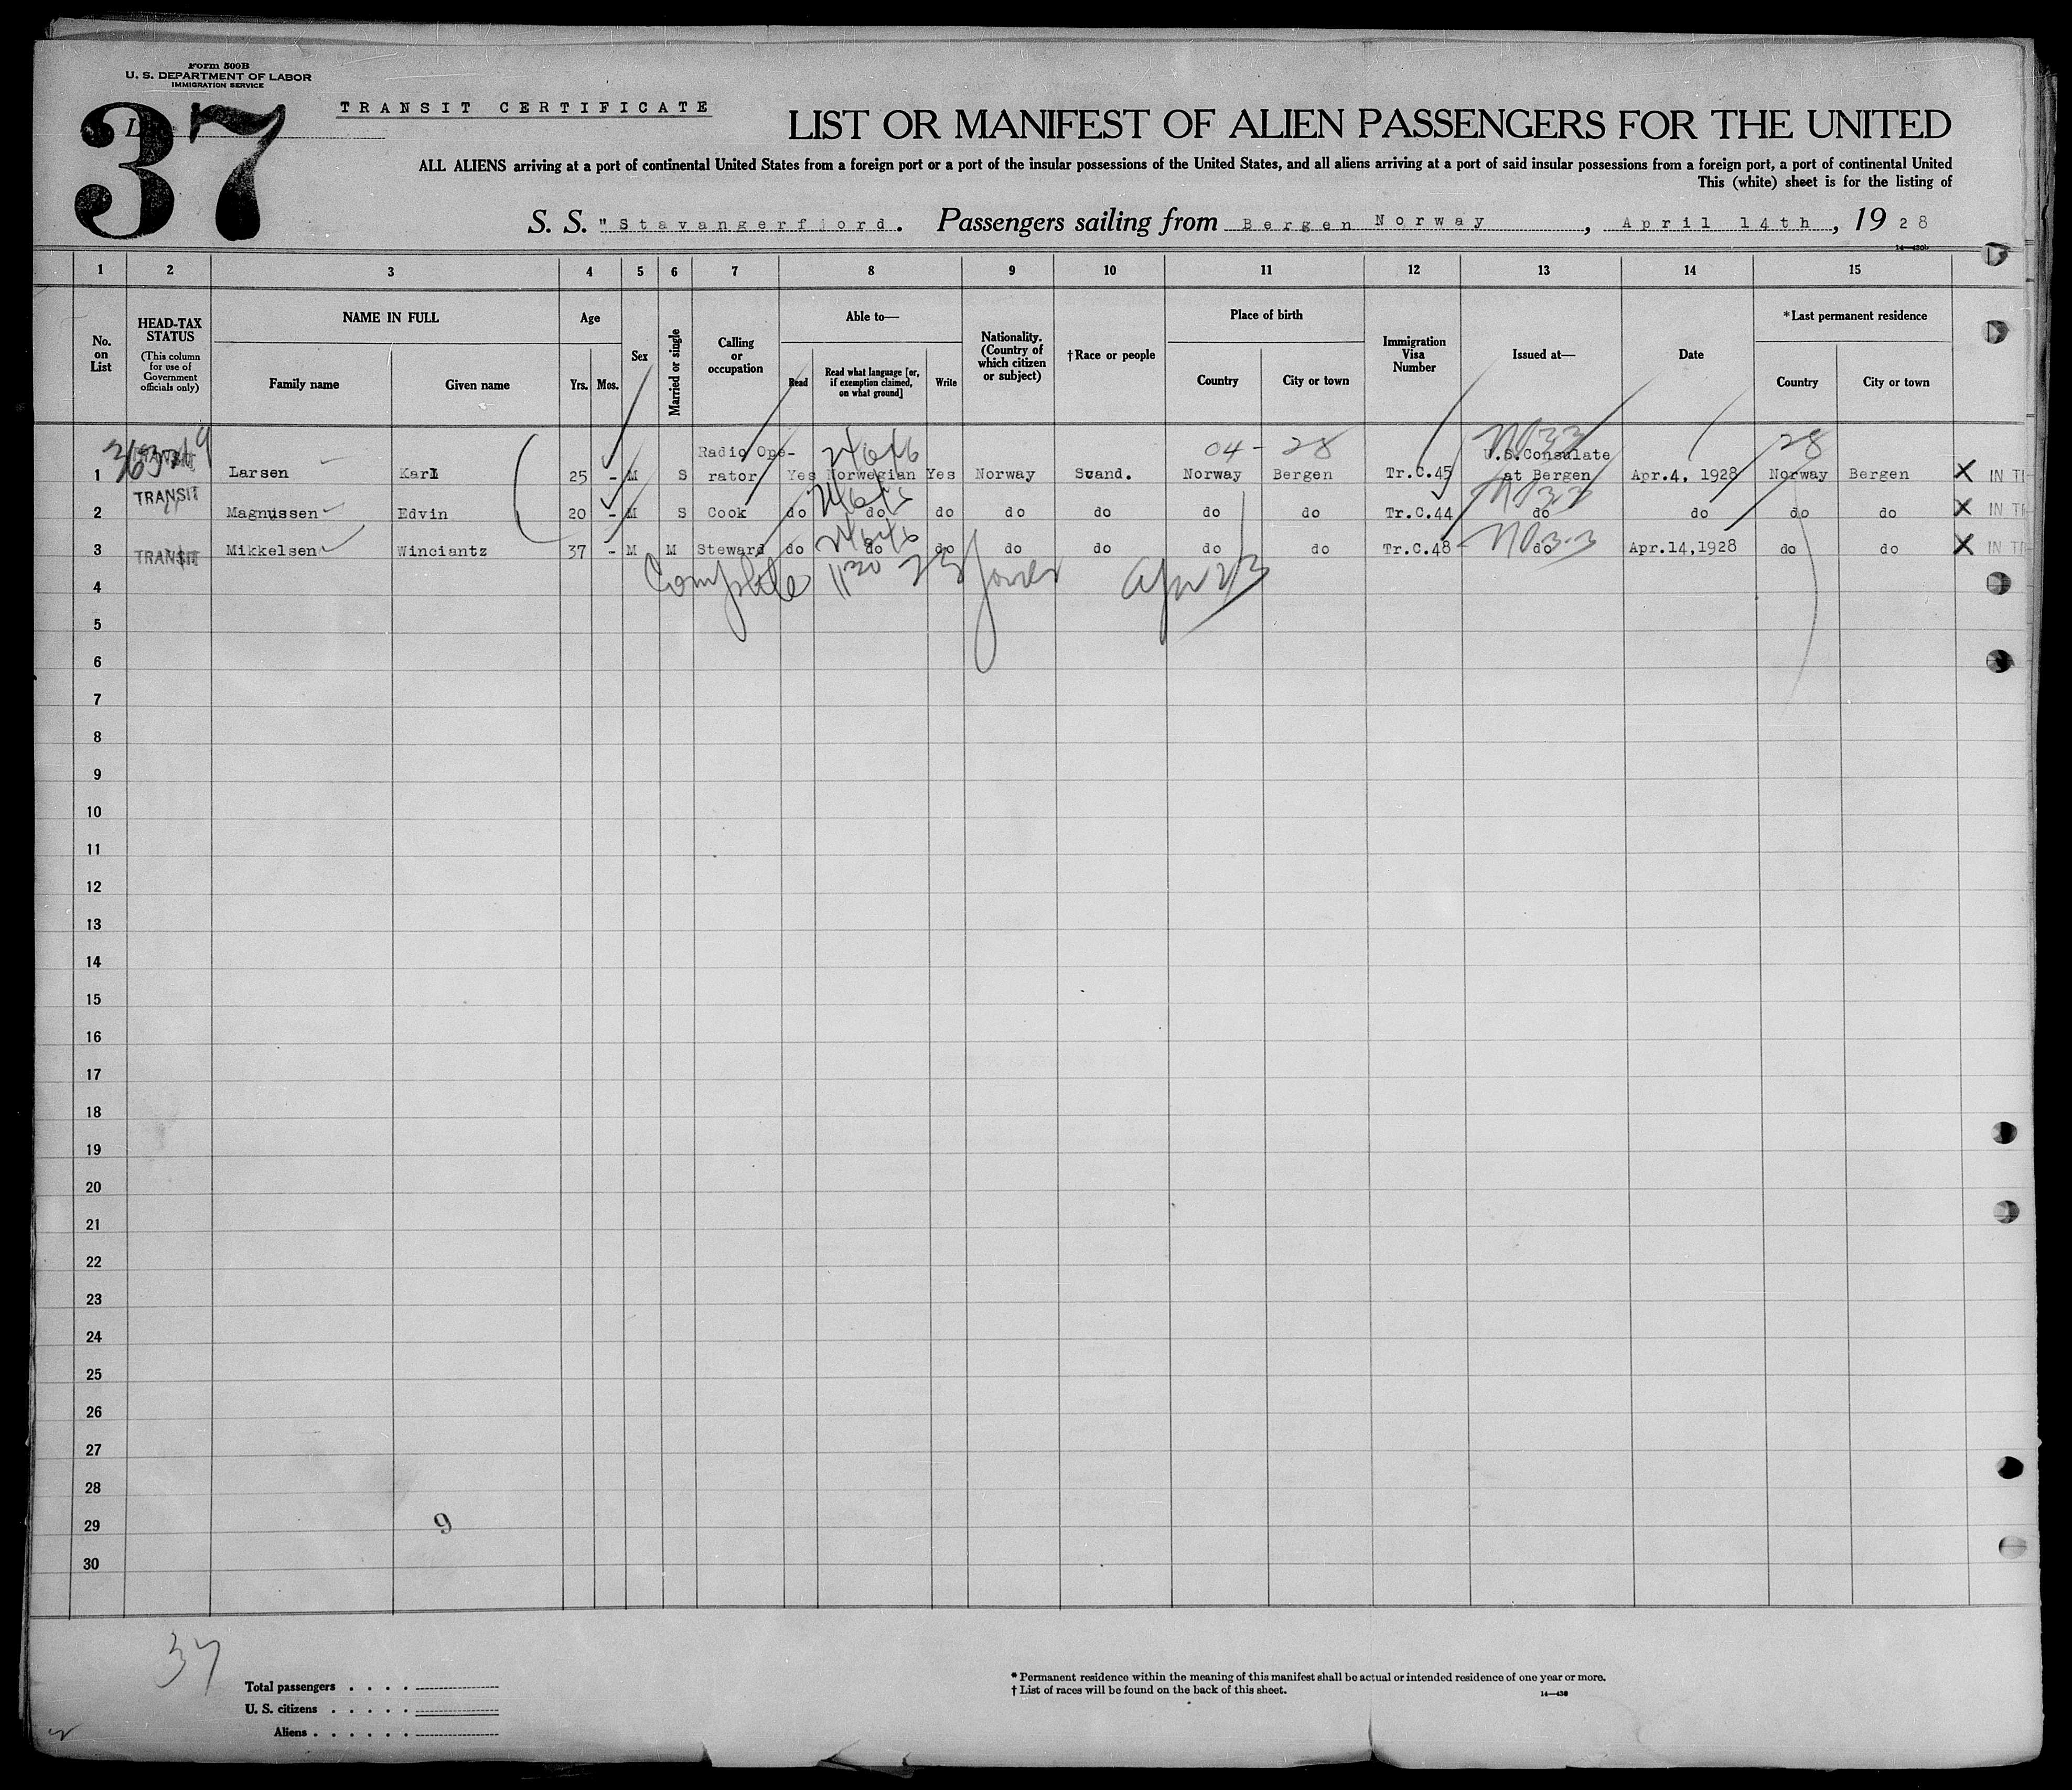 Form 500B
U. S. DEPARTMENT OF LABOR
IMMIGRATION SERVICE
37
TRANSIT CERTIFICATE
LIST OR MANIFEST OF ALIEN PASSENGERS FOR THE UNITED
ALL ALIENS arriving at a port of continental United States from a foreign port or a port of the insular possessions of the United States, and all aliens arriving at a port of said insular possessions from a foreign port, a port of continental United
This (white) sheet is for the listing of
S. S. "Stavangerfjord. Passengers sailing from Bergen Norway, April 14th, 1928
1 2 3 4 5 6 7 8 9 10 11 12 13 14 15
No. on List
HEAD-TAX STATUS
(This column for use of Government officials only)
NAME IN FULL
Family name Given name
Age
Yrs. Mos.
Sex
Married or single
Calling or occupation
Able to—
Read
Read what language [or, if exemption claimed, on what ground]
Write
Nationality. (Country of which citizen or subject)
†Race or people
Place of birth
Country City or town
Immigration Visa Number
Issued at—
Date
*Last permanent residence
Country City or town
04 - 28 28
1 TRANSIT Larsen Karl 25 - M S Radio Ope-rator Yes Norwegian Yes Norway Scand. Norway Bergen Tr.C.45 U.S.Consulate at Bergen Apr.4, 1928 Norway Bergen X IN T
2 TRANSIT Magnussen Edvin 20 - M S Cook do do do do do do do Tr.C.44 do do do do X IN T
3 TRANSIT Mikkelsen Winciantz 37 - M M Steward do do do do do do do Tr.C.48 do Apr.14,1928 do do X IN T
Complete 1130 Jones Apr 23
4
5
6
7
8
9
10
11
12
13
14
15
16
17
18
19
20
21
22
23
24
25
26
27
28
29
9
30
37
Total passengers
U. S. citizens
Aliens
* Permanent residence within the meaning of this manifest shall be actual or intended residence of one year or more.
† List of races will be found on the back of this sheet.
14—430